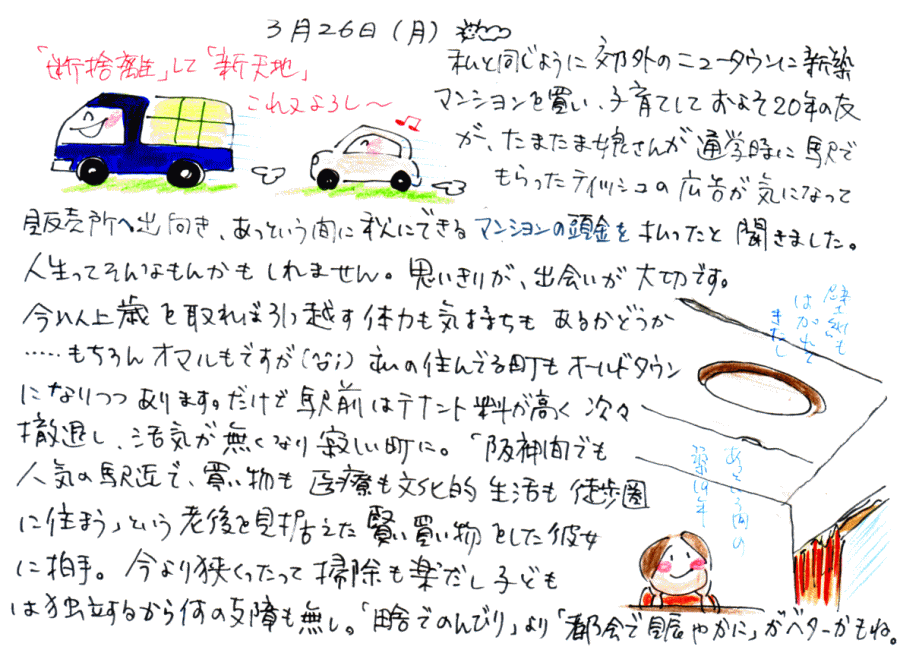 3月26日(月)
「断捨離」して「新天地」
これ又よろし〜
私と同じように郊外のニュータウンに新築
マンションを買い、子育てしておよそ20年の友
が、たまたま娘さんが通学時に駅で
もらったティッシュの広告が気になって
販売所へ出向き、あっという間に秋にできるマンションの頭金を払ったと聞きました。
人生ってそんなもんかもしれません。思いきりが、出会いが大切です。
今以上歳を取れば引っ越す体力も気持ちもあるかどうか
・・・・・もちろんオマルもですが(^^;) 私の住んでる町もオールドタウン
になりつつあります。だけど駅前はテナント料が高く次々
撤退し、活気が無くなり寂しい町に。「阪神間でも
人気の駅近で、買い物も医療も文化的生活も徒歩圏
に住まう」という老後を見据えた賢い買い物をした彼女
に拍手。今より狭くったって掃除も楽だし子ども
は独立するから何の支障も無し。「田舎でのんびり」より「都会で賑やかに」がベターかもね。
壁紙も
はがれて
きたし
あっという間の
築19年